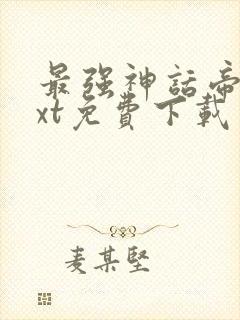 最强神話帝
xt免費下載
麦某堅